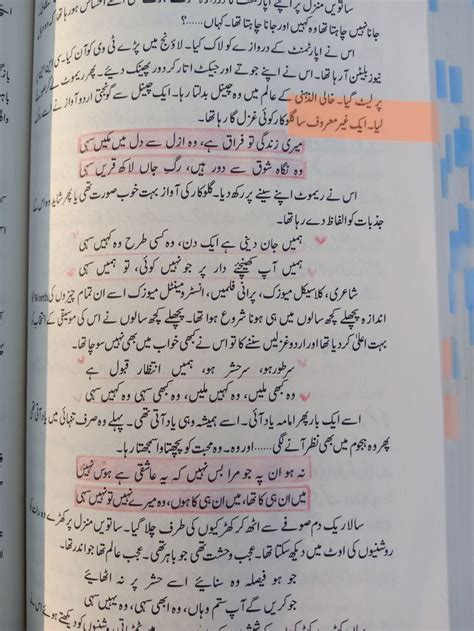 ساتویں منزل پر اپنے اپارٹمنٹ کا دروازہ
جانا نہیں چاہتا تھا وہ کہیں اور جانا چاہتا تھا۔ کہاں.....؟
اس نے اپارٹمنٹ کے دروازے کو لاک کیا۔ لاؤنج میں پڑے ٹی وی کو آن کیا۔ سی
نیوز بلیٹن آ رہا تھا۔ اس نے اپنے جوتے اور جیکٹ اتار کر دور پھینک دیئے۔ پھر ریموٹ
پر لیٹ گیا۔ خالی الذہنی کے عالم میں وہ چینل بدلتا رہا۔ ایک چینل سے گونجتی اردو آواز نے اسے
لیا۔ ایک غیر معروف سا گلوکار کوئی غزل گا رہا تھا۔
میری زندگی تو فراق ہے، وہ ازل سے دل میں مکیں سہی
وہ نگاہ شوق سے دور ہیں، رگِ جاں لاکھ قریں سہی
اس نے ریموٹ اپنے سینے پر رکھ دیا۔ گلوکار کی آواز بہت خوب صورت تھی یا پھر شاید وہ اس کے
جذبات کو الفاظ دے رہا تھا۔
ہمیں جان دینی ہے ایک دن، وہ کسی طرح وہ کہیں سہی
ہمیں آپ کھینچئے دار پر جو نہیں کوئی، تو ہمیں سہی
شاعری، کلاسیکل میوزک، پرانی فلمیں، انسٹرومینٹل میوزک اسے ان تمام چیزوں کی Words
اندازہ پچھلے کچھ سالوں میں ہی ہونا شروع ہوا تھا۔ پچھلے کچھ سالوں نے اس کی موسیقی کے انتخاب
بہت اعلیٰ کر دیا تھا اور اردو غزلیں سننے کا تو اس نے کبھی خواب میں بھی نہیں سوچا تھا۔
سرِ طور ہو، سرِ حشر ہو، ہمیں انتظار قبول ہے
وہ کبھی ملیں، کہیں ملیں، وہ کبھی سہی وہ کہیں سہی
اسے ایک بار پھر امامہ یاد آئی۔ اسے ہمیشہ وہی یاد آتی تھی۔ پہلے وہ صرف تنہائی میں یاد آتی تھی
پھر وہ ہجوم میں بھی نظر آنے لگی..... اور وہ۔ وہ محبت کو پچھتاوا سمجھتا رہا۔
نہ ہو ان پہ جو مرا بس نہیں کہ یہ عاشقی ہے ہوس نہیں
میں ان ہی کا تھا، میں ان ہی کا ہوں، وہ میرے نہیں تو نہیں سہی
سالار یک دم صوفے سے اٹھ کر کھڑکیوں کی طرف چلا گیا۔ ساتویں منزل پر کھڑے وہ رات
روشنیوں کی اوٹ میں دیکھ سکتا تھا۔ عجب وحشت تھی جو باہر تھی۔ عجب عالم تھا جو اندر تھا۔
جو ہو فیصلہ وہ سنائیے اسے حشر پر نہ اٹھائیے
جو کریں گے آپ ستم وہاں، وہ ابھی سہی، وہ یہیں سہی